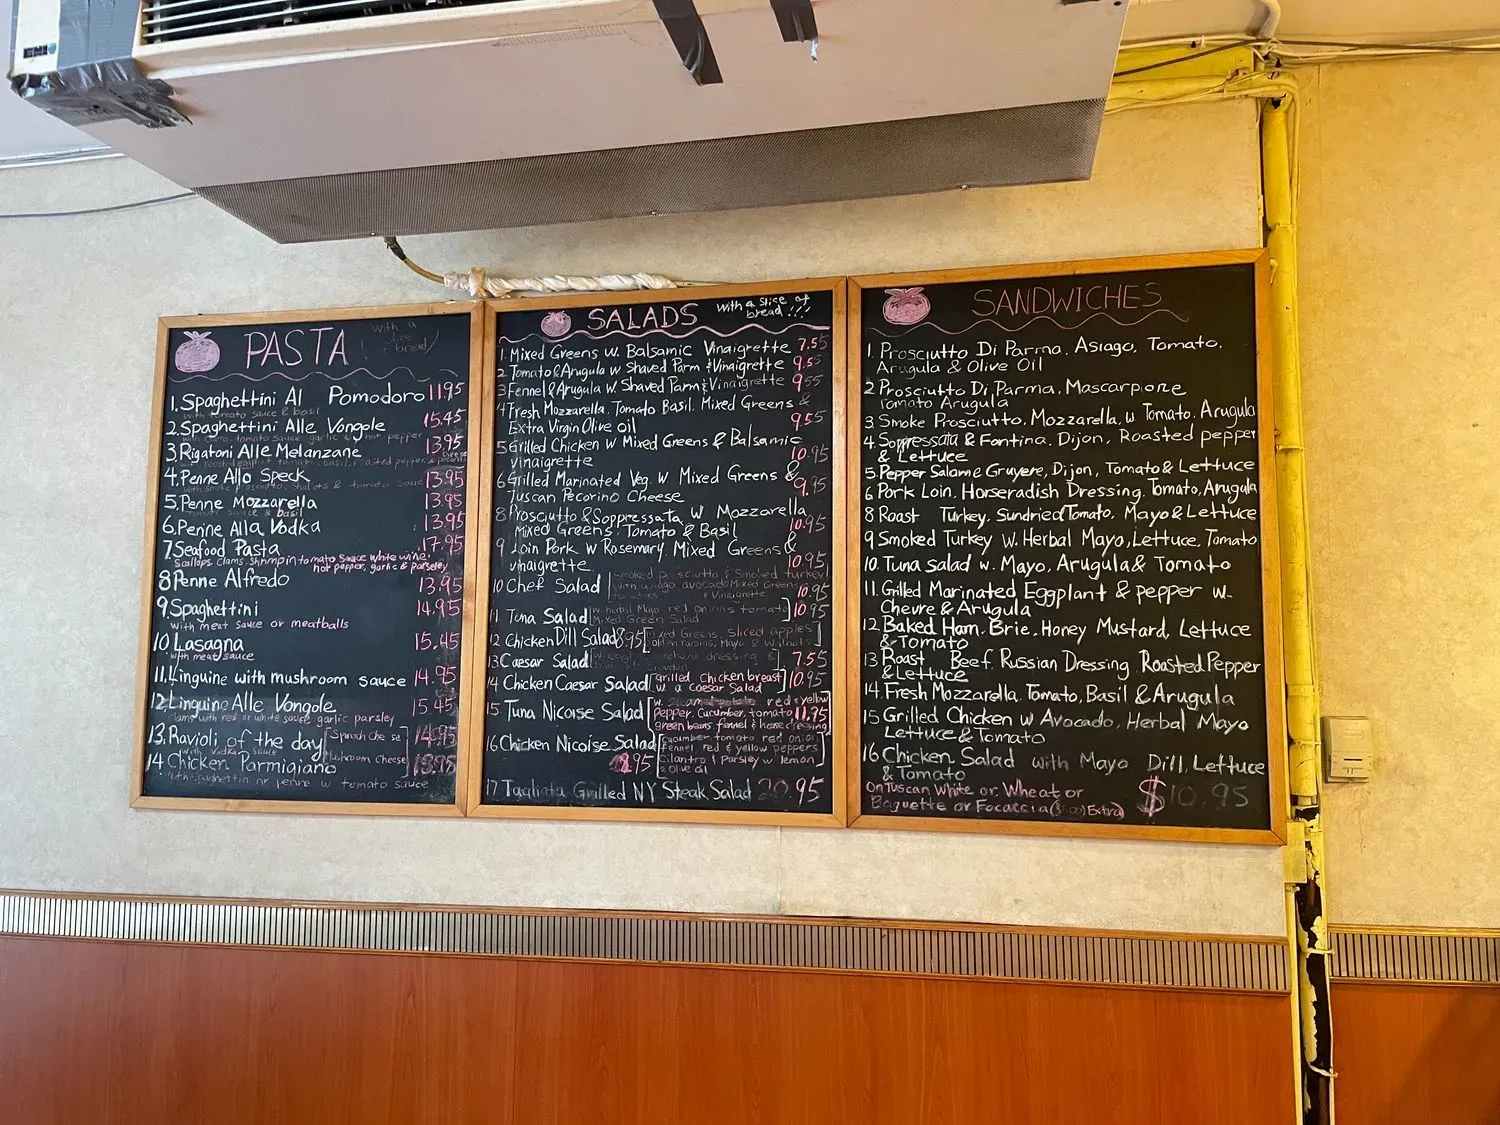 PASTA
with a
slice
of bread
1. Spaghettini Al Pomodoro 11.95
with tomato sauce & basil
2. Spaghettini Alle Vongole 15.45
tomato sauce garlic & hot pepper
3. Rigatoni Alle Melanzane 13.95
4. Penne Allo Speck 13.95
5. Penne Mozzarella 13.95
tomato sauce & basil
6. Penne Alla Vodka 13.95
7. Seafood Pasta 17.95
Scallops, clams, shrimp in tomato sauce white wine,
hot pepper, garlic & parsley
8 Penne Alfredo 13.95
9. Spaghettini 14.95
with meat sauce or meatballs
10 Lasagna 15.45
with meat sauce
11. Linguine with mushroom sauce 14.95
12. Linguino Alle Vongole 15.45
clams with red or white sauce garlic parsley
13. Ravioli of the day 14.95
with Vodka Sauce Mushroom Cheese
14 Chicken Parmigiano 13.95
with spaghettin or penne w tomato sauce
SALADS with a slice of
bread !!!
1. Mixed Greens w. Balsamic Vinaigrette 7.55
2 Tomato & Arugula w Shaved Parm & Vinaigrette 9.55
3 Fennel & Arugula w Shaved Parm & Vinaigrette 9.55
4 Fresh Mozzarella, Tomato Basil, Mixed Greens &
Extra Virgin Olive oil 9.55
5 Grilled Chicken w Mixed Greens & Balsamic
vinaigrette 10.95
6 Grilled Marinated Veg. w Mixed Greens &
Tuscan Pecorino Cheese 9.95
8 Prosciutto & Soppressata w Mozzarella
Mixed Greens, Tomato & Basil 10.95
9 Loin Pork w Rosemary Mixed Greens &
vinaigrette 10.95
10 Chef Salad smoked prosciutto & Smoked turkey
with asiago avocado Mixed Greens
& Vinaigrette 10.95
11 Tuna Salad w. herbal Mayo red onions tomato 10.95
Mixed Green Salad
12 Chicken Dill Salad 8.95 Mixed Greens, sliced apples
golden raisins, Mayo & Walnuts
13 Caesar Salad 7.55
14 Chicken Caesar Salad grilled chicken breast 10.95
w a caesar salad
15 Tuna Nicoise Salad red & yellow
pepper, cucumber, tomato 11.95
green beans, fennel & horse dressing
16 Chicken Nicoise Salad cucumber tomato red onion
fennel, red & yellow peppers
cilantro & parsley w lemon
& olive oil
17 Tagliata Grilled NY Steak Salad 20.95
SANDWICHES
1. Prosciutto Di Parma, Asiago, Tomato,
Arugula & Olive Oil
2 Prosciutto Di Parma, Mascarpone
Tomato Arugula
3 Smoke Prosciutto, Mozzarella, w Tomato, Arugula
4 Soppressata & Fontina, Dijon, Roasted pepper
& Lettuce
5 Pepper Salame Gruyere, Dijon, Tomato & Lettuce
6 Pork Loin, Horseradish Dressing, Tomato, Arugula
8 Roast Turkey, Sundried Tomato, Mayo & Lettuce
9 Smoked Turkey w. Herbal Mayo, Lettuce, Tomato
10. Tuna salad w. Mayo, Arugula & Tomato
11. Grilled Marinated Eggplant & pepper w-
Chevre & Arugula
12 Baked Ham, Brie, Honey Mustard, Lettuce
& Tomato
13 Roast Beef, Russian Dressing, Roasted Pepper
& Lettuce
14. Fresh Mozzarella, Tomato, Basil & Arugula
15 Grilled Chicken w Avocado, Herbal Mayo
Lettuce & Tomato
16 Chicken Salad with Mayo Dill, Lettuce
& Tomato
On Tuscan White or Wheat or $10.95
Baguette or Focaccia ($1.00 Extra)